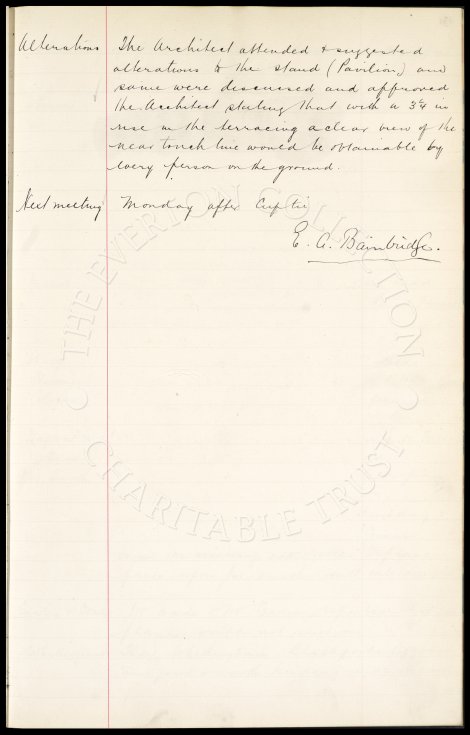 Alterations The Architect attended & suggested
alterations to the stand (Pavilion) and
same were discussed and approved
the Architect stating that with a 3¼ in
rise in the terracing a clear view of the
near touch line would be obtainable by
every person on the ground.
Next meeting Monday after Cup tie
E. A. Bainbridge.
THE EVERTON COLLECTION
CHARITABLE TRUST